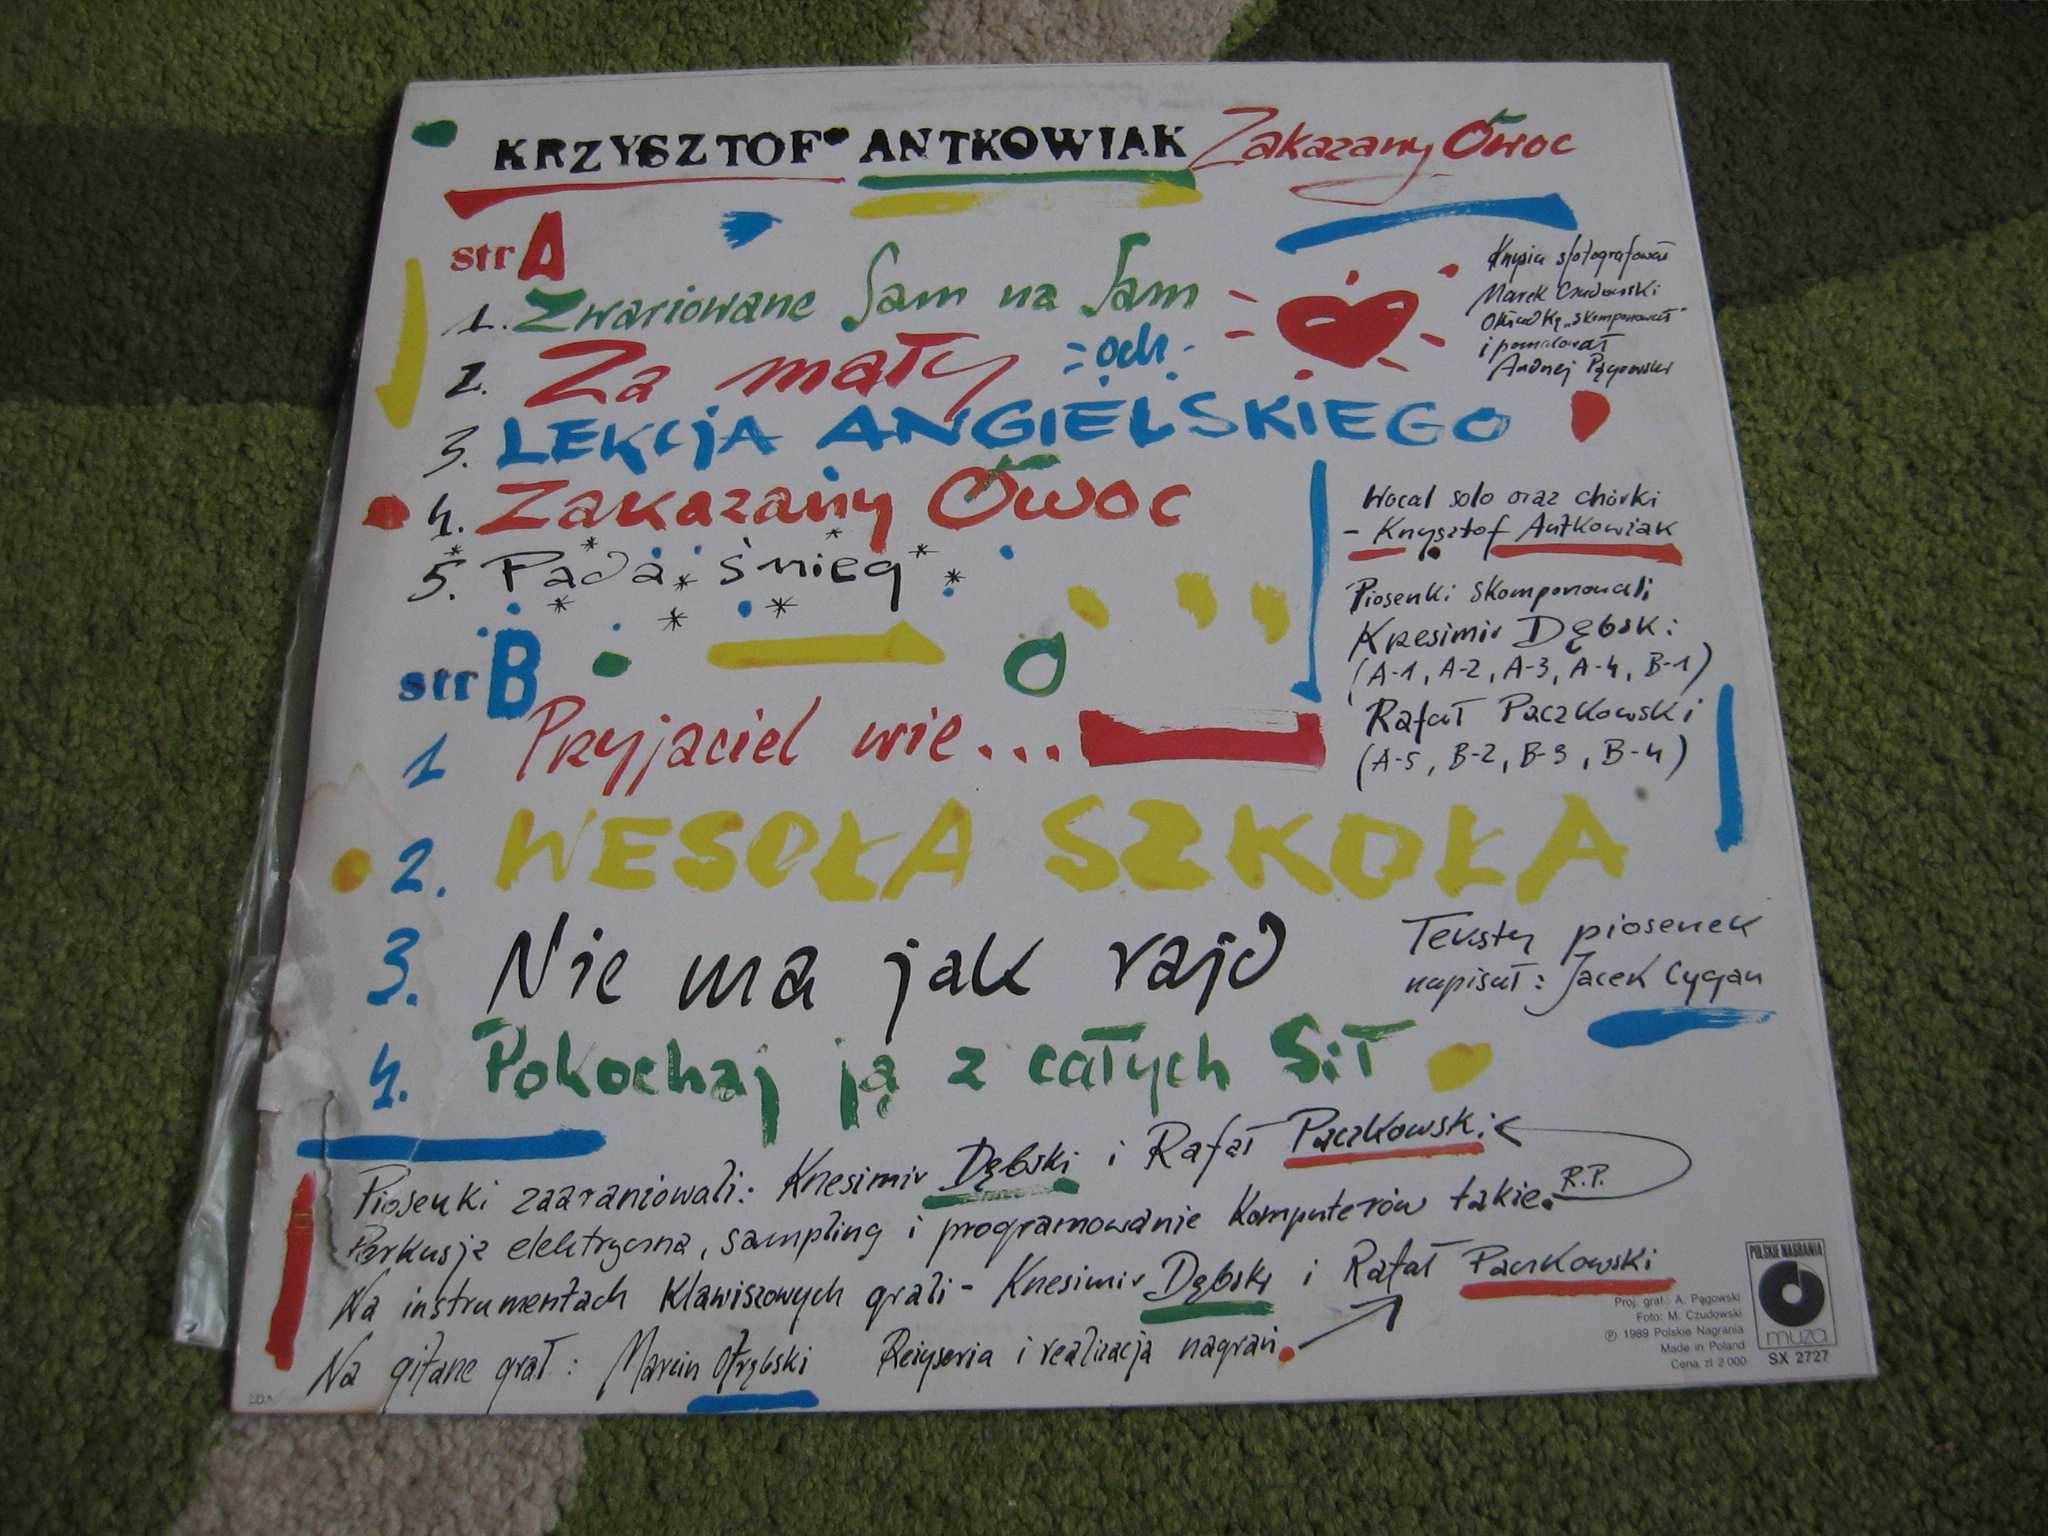 KRZYSZTOF ANTKOWIAK Zakazany Owoc
str A
1. Zwariowane Sam na Sam
2. Za mały
och
3. LEKCJA ANGIELSKIEGO
4. Zakazany Owoc
5. Pada śnieg
Krzysia sfotografował
Marek Czudowski
Okładkę „skomponował”
i pomalował
Andrzej Pągowski
Wocal solo oraz chórki
- Krzysztof Antkowiak
Piosenki skomponowali
Krzesimir Dębski
(A-1, A-2, A-3, A-4, B-1)
Rafał Paczkowski
(A-5, B-2, B-3, B-4)
str B
1 Przyjaciel wie...
2. WESOŁA SZKOŁA
3. Nie ma jak rajd
4. Pokochaj ją z całych Sił
Teksty piosenek
napisał: Jacek Cygan
Piosenki zaaranżowali: Krzesimir Dębski i Rafał Paczkowski
Perkusja elektryczna, sampling i programowanie komputerów także. R.P.
Na instrumentach klawiszowych grali - Krzesimir Dębski i Rafał Paczkowski
Na gitarze grał: Marcin Otrębski Reżyseria i realizacja nagrań.
Proj. graf.: A. Pęgowski
Foto: M. Czudowski
℗ 1989 Polskie Nagrania
Made in Poland
Cena zł 2 000
POLSKIE NAGRANIA
muza
SX 2727